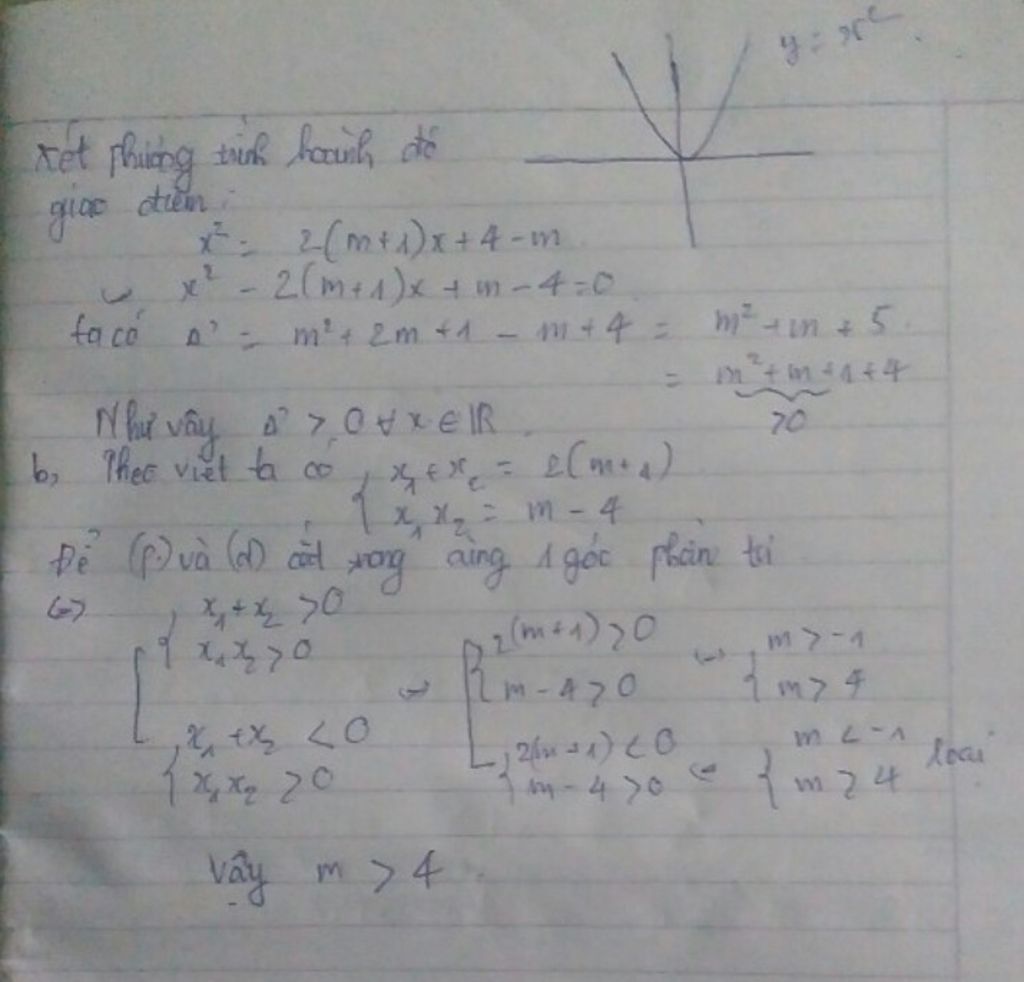 y = x²
xét phương trình hoành độ
giao điểm:
x² = 2(m+1)x + 4 - m
↔ x² - 2(m+1)x + m - 4 = 0
ta có Δ' = m² + 2m + 1 - m + 4 = m² + m + 5
= m² + m + 1 + 4
>0
Như vậy Δ' > 0 ∀ x ∈ ℝ
b, Theo viét ta có { x₁ + x₂ = 2(m+1)
x₁ x₂ = m - 4
Để (p) và (d) cắt trong cùng 1 góc phần tư
<=> [ { x₁ + x₂ > 0
x₁ x₂ > 0 ↔ [ { 2(m+1) > 0 ↔ { m > -1
m - 4 > 0 m > 4
{ x₁ + x₂ < 0 { 2(m+1) < 0 ↔ { m < -1 loại
x₁ x₂ > 0 m - 4 > 0 m > 4
Vậy m > 4